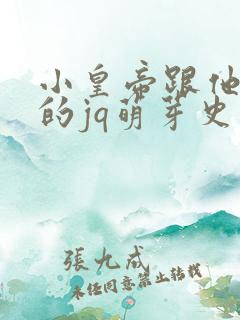 小皇帝跟他
的jq萌芽史
張九成
未经同意禁止转载